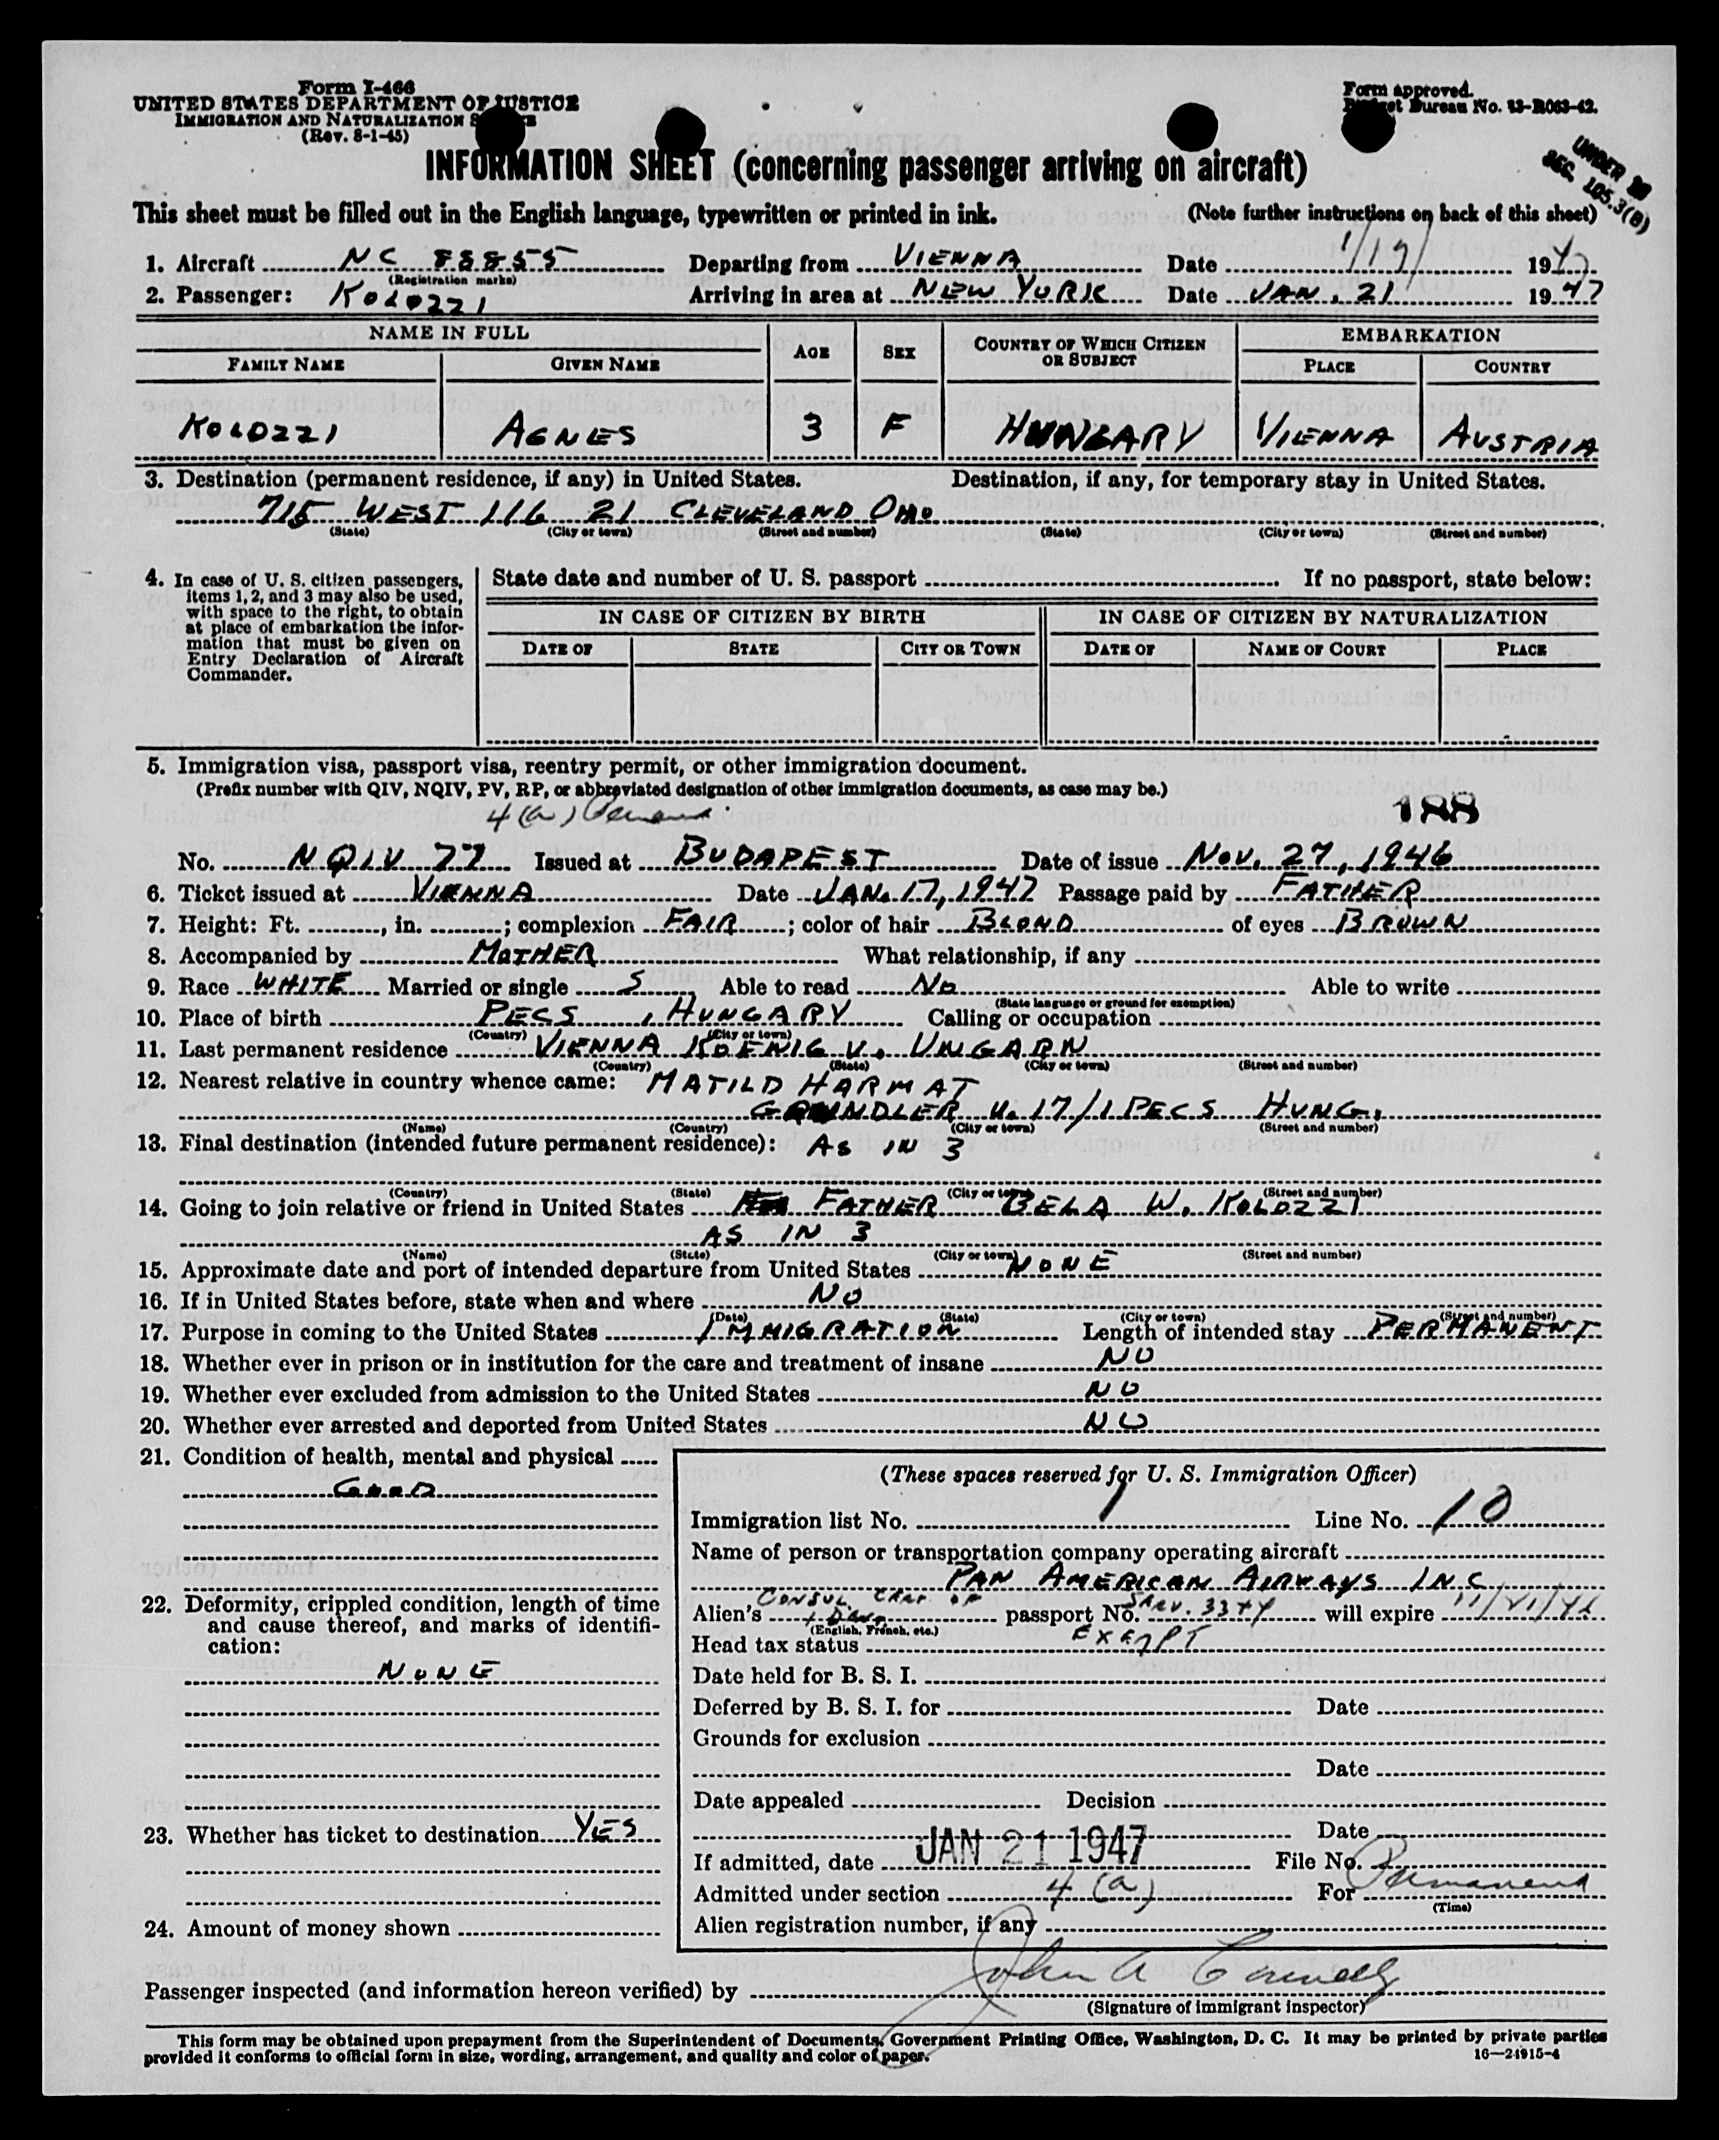 Form I-466
UNITED STATES DEPARTMENT OF JUSTICE
IMMIGRATION AND NATURALIZATION
(Rev. 8-1-45)
Form approved.
Budget Bureau No. 43-R063-42.
UNDER
SEC. 105.3(B)
INFORMATION SHEET (concerning passenger arriving on aircraft)
This sheet must be filled out in the English language, typewritten or printed in ink. (Note further instructions on back of this sheet)
1. Aircraft NC 88855 Departing from VIENNA Date 1/19/ 1947
(Registration marks)
2. Passenger: KOLOZZI Arriving in area at NEW YORK Date JAN. 21 1947
NAME IN FULL AGE SEX COUNTRY OF WHICH CITIZEN OR SUBJECT EMBARKATION
FAMILY NAME GIVEN NAME PLACE COUNTRY
KOLOZZI AGNES 3 F HUNGARY VIENNA AUSTRIA
3. Destination (permanent residence, if any) in United States. Destination, if any, for temporary stay in United States.
715 WEST 116 21 CLEVELAND OHIO
(State) (City or town) (Street and number) (State) (City or town) (Street and number)
4. In case of U. S. citizen passengers, items 1, 2, and 3 may also be used, with space to the right, to obtain at place of embarkation the information that must be given on Entry Declaration of Aircraft Commander.
State date and number of U. S. passport If no passport, state below:
IN CASE OF CITIZEN BY BIRTH IN CASE OF CITIZEN BY NATURALIZATION
DATE OF STATE CITY OR TOWN DATE OF NAME OF COURT PLACE
5. Immigration visa, passport visa, reentry permit, or other immigration document.
(Prefix number with QIV, NQIV, PV, RP, or abbreviated designation of other immigration documents, as case may be.)
4 (a) 188
No. NQIV 77 Issued at BUDAPEST Date of issue NOV. 27, 1946
6. Ticket issued at VIENNA Date JAN. 17, 1947 Passage paid by FATHER
7. Height: Ft. , in. ; complexion FAIR ; color of hair BLOND of eyes BROWN
8. Accompanied by MOTHER What relationship, if any
9. Race WHITE Married or single S Able to read NO Able to write
(State language or ground for exemption)
10. Place of birth PECS , HUNGARY Calling or occupation
(Country) (City or town)
11. Last permanent residence VIENNA KOENIG V. UNGARN
(Country) (State) (City or town) (Street and number)
12. Nearest relative in country whence came: MATILD HARMAT
GRINDLER U. 17/1 PECS HUNG.
(Name) (Country) (City or town) (Street and number)
13. Final destination (intended future permanent residence): AS IN 3
(Country) (State) (City or town) (Street and number)
14. Going to join relative or friend in United States FATHER BELA W. KOLOZZI
AS IN 3
(Name) (State) (City or town) (Street and number)
15. Approximate date and port of intended departure from United States NONE
16. If in United States before, state when and where NO
(Date) (State) (City or town) (Street and number)
17. Purpose in coming to the United States IMMIGRATION Length of intended stay PERMANENT
18. Whether ever in prison or in institution for the care and treatment of insane NO
19. Whether ever excluded from admission to the United States NO
20. Whether ever arrested and deported from United States NO
21. Condition of health, mental and physical
GOOD
22. Deformity, crippled condition, length of time and cause thereof, and marks of identification:
NONE
23. Whether has ticket to destination YES
24. Amount of money shown
(These spaces reserved for U. S. Immigration Officer)
Immigration list No. 1 Line No. 10
Name of person or transportation company operating aircraft
PAN AMERICAN AIRWAYS INC
CONSUL
Alien's passport No. 3374 will expire
(English, French, etc.)
Head tax status EXEMPT
Date held for B. S. I.
Deferred by B. S. I. for Date
Grounds for exclusion
Date
Date appealed Decision
Date
If admitted, date JAN 21 1947 File No.
Admitted under section 4 (a) For Permanent
(Time)
Alien registration number, if any
Passenger inspected (and information hereon verified) by John A Connelly
(Signature of immigrant inspector)
This form may be obtained upon prepayment from the Superintendent of Documents, Government Printing Office, Washington, D. C. It may be printed by private parties
provided it conforms to official form in size, wording, arrangement, and quality and color of paper. 16—24915-4